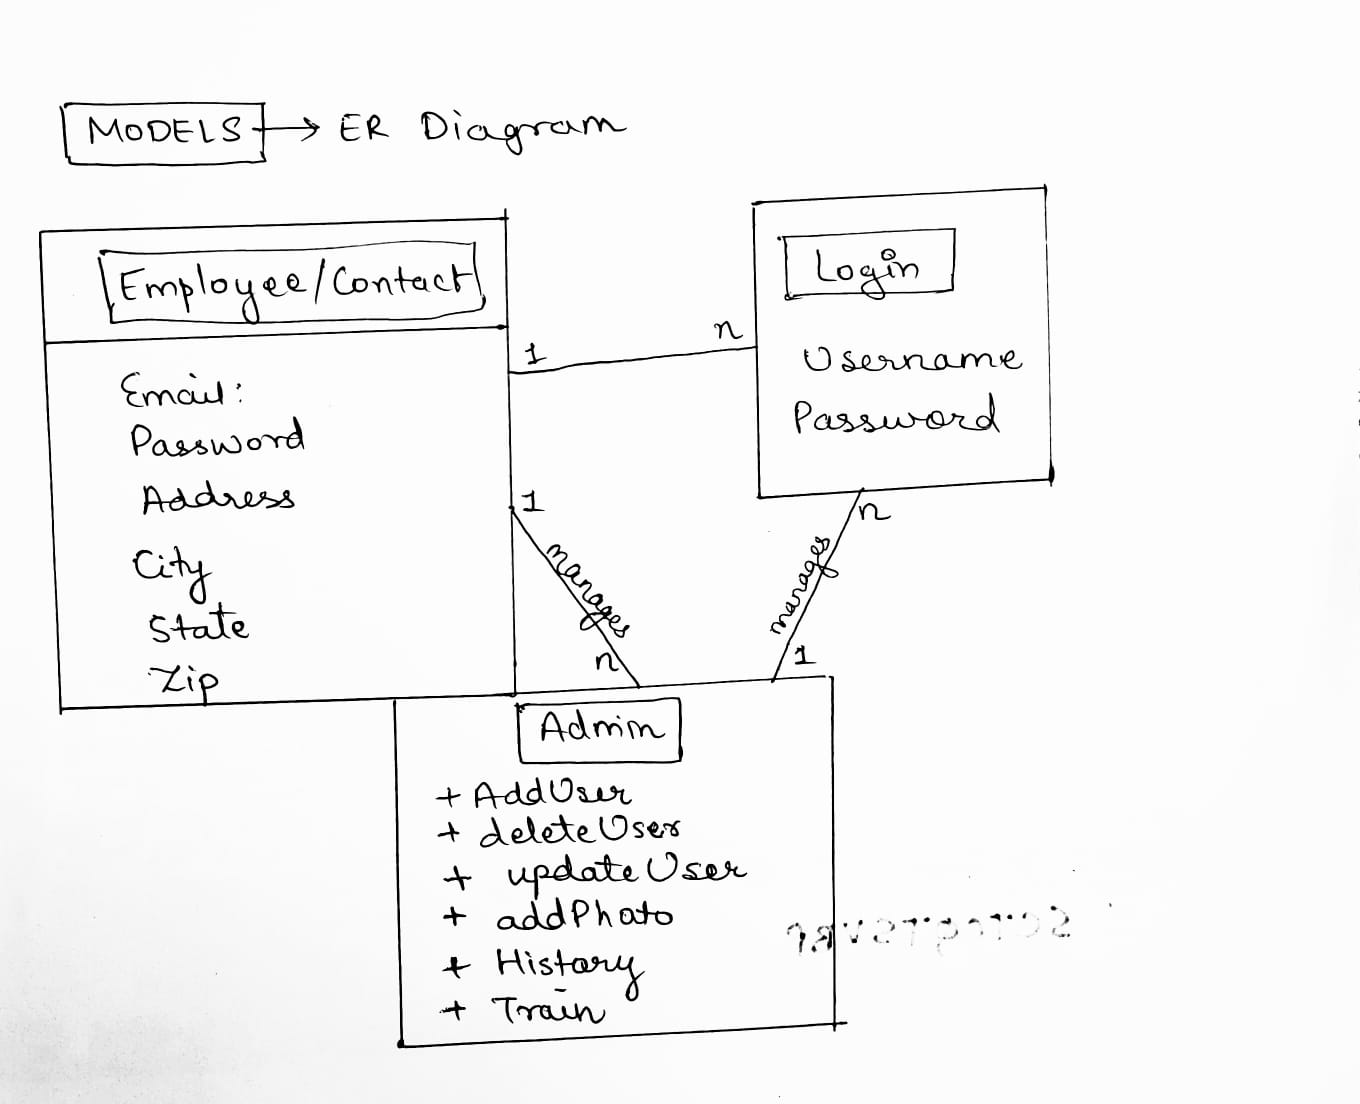 MODELS → ER Diagram
Employee/Contact
Email:
Password
Address
City
State
Zip
1
n
Login
Username
Password
1
manages
n
n
manages
1
Admin
+ AddUser
+ deleteUser
+ updateUser
+ addPhoto
+ History
+ Train